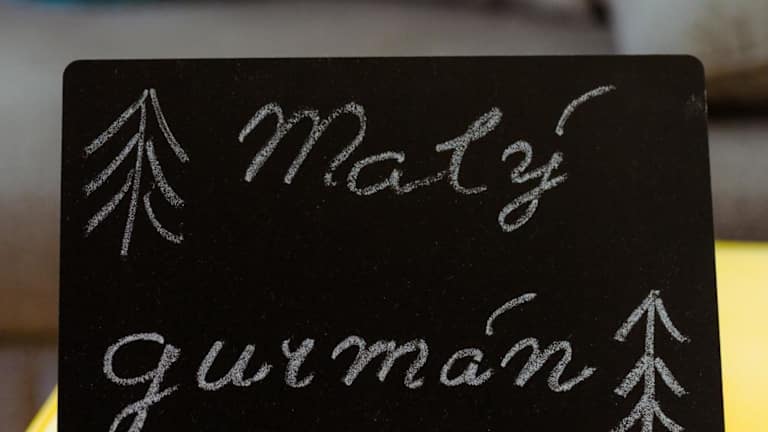 Malý
gurmán